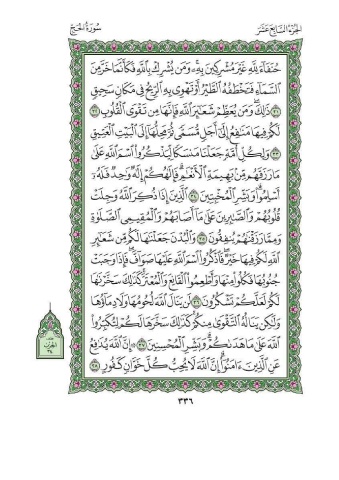 الجزء السابع عشر
سورة الحج
حُنَفَاءَ لِلَّهِ غَيْرَ مُشْرِكِينَ بِهِۦ وَمَن يُشْرِكْ بِٱللَّهِ فَكَأَنَّمَا خَرَّ مِنَ
ٱلسَّمَاءِ فَتَخْطَفُهُ ٱلطَّيْرُ أَوْ تَهْوِى بِهِ ٱلرِّيحُ فِى مَكَانٍ سَحِيقٍ
٣١ ذَٰلِكَ وَمَن يُعَظِّمْ شَعَٰٓئِرَ ٱللَّهِ فَإِنَّهَا مِن تَقْوَى ٱلْقُلُوبِ ٣٢
لَكُمْ فِيهَا مَنَٰفِعُ إِلَىٰٓ أَجَلٍ مُّسَمًّى ثُمَّ مَحِلُّهَآ إِلَى ٱلْبَيْتِ ٱلْعَتِيقِ
٣٣ وَلِكُلِّ أُمَّةٍ جَعَلْنَا مَنسَكًا لِّيَذْكُرُوا۟ ٱسْمَ ٱللَّهِ عَلَىٰ
مَا رَزَقَهُم مِّنۢ بَهِيمَةِ ٱلْأَنْعَٰمِ فَإِلَٰهُكُمْ إِلَٰهٌ وَٰحِدٌ فَلَهُۥٓ
أَسْلِمُوا۟ وَبَشِّرِ ٱلْمُخْبِتِينَ ٣٤ ٱلَّذِينَ إِذَا ذُكِرَ ٱللَّهُ وَجِلَتْ
قُلُوبُهُمْ وَٱلصَّٰبِرِينَ عَلَىٰ مَآ أَصَابَهُمْ وَٱلْمُقِيمِى ٱلصَّلَوٰةِ
وَمِمَّا رَزَقْنَٰهُمْ يُنفِقُونَ ٣٥ وَٱلْبُدْنَ جَعَلْنَٰهَا لَكُم مِّن شَعَٰٓئِرِ
ٱللَّهِ لَكُمْ فِيهَا خَيْرٌ فَٱذْكُرُوا۟ ٱسْمَ ٱللَّهِ عَلَيْهَا صَوَآفَّ فَإِذَا وَجَبَتْ
جُنُوبُهَا فَكُلُوا۟ مِنْهَا وَأَطْعِمُوا۟ ٱلْقَانِعَ وَٱلْمُعْتَرَّ كَذَٰلِكَ سَخَّرْنَٰهَا
لَكُمْ لَعَلَّكُمْ تَشْكُرُونَ ٣٦ لَن يَنَالَ ٱللَّهَ لُحُومُهَا وَلَا دِمَآؤُهَا
وَلَٰكِن يَنَالُهُ ٱلتَّقْوَىٰ مِنكُمْ كَذَٰلِكَ سَخَّرَهَا لَكُمْ لِتُكَبِّرُوا۟
ٱللَّهَ عَلَىٰ مَا هَدَىٰكُمْ وَبَشِّرِ ٱلْمُحْسِنِينَ ٣٧ إِنَّ ٱللَّهَ يُدَٰفِعُ
عَنِ ٱلَّذِينَ ءَامَنُوٓا۟ إِنَّ ٱللَّهَ لَا يُحِبُّ كُلَّ خَوَّانٍ كَفُورٍ ٣٨
الحزب
٣٤
٣٣٦